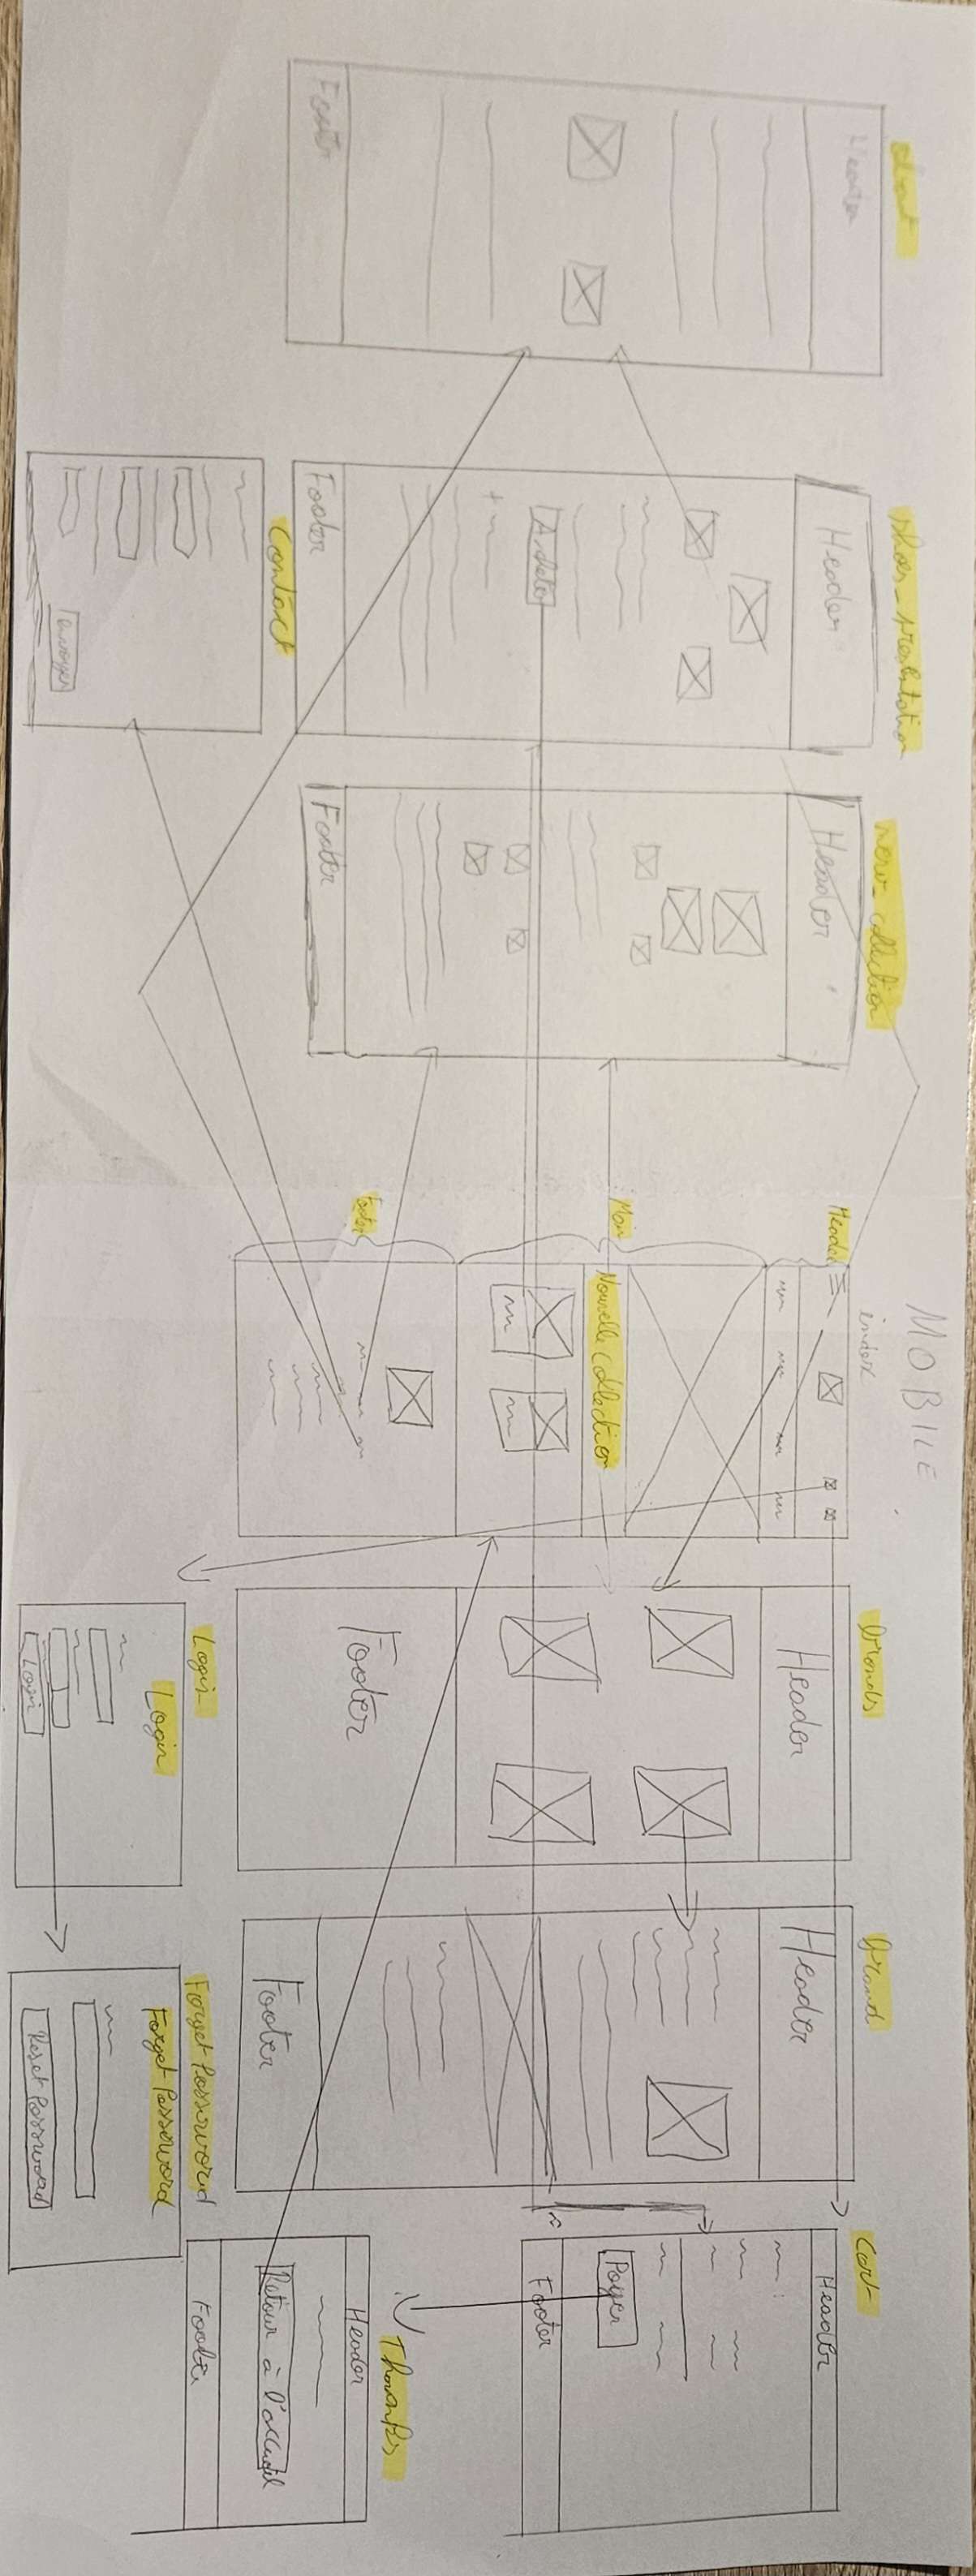 MOBILE
index
about
Header
Footer
shoes-presentation
Header
Acheter
Footer
Contact
Envoyer
new-collection
Header
Footer
Header
Main
Nouvelle Collection
Footer
Brands
Header
Footer
Login
Login
Login
Brand
Header
Footer
Forget Password
Forget Password
Reset Password
Cart
Header
Payer
Footer
Thanks
Header
Retour à l'accueil
Footer